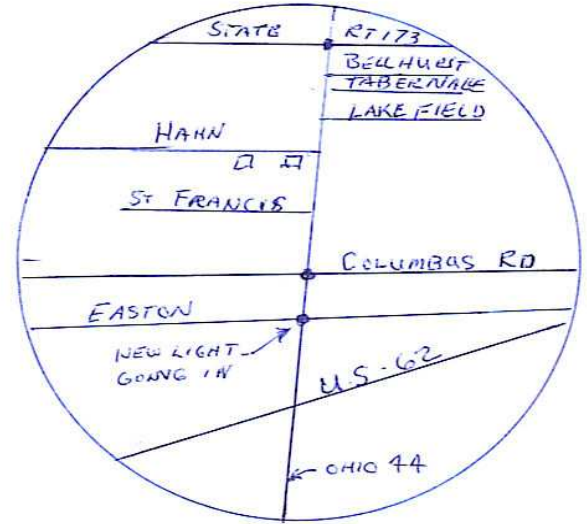 STATE RT 173
BELLHURST
TABERNACLE
LAKE FIELD
HAHN
ST FRANCIS
COLUMBUS RD
EASTON
NEW LIGHT
GOING IN
U.S-62
OHIO 44